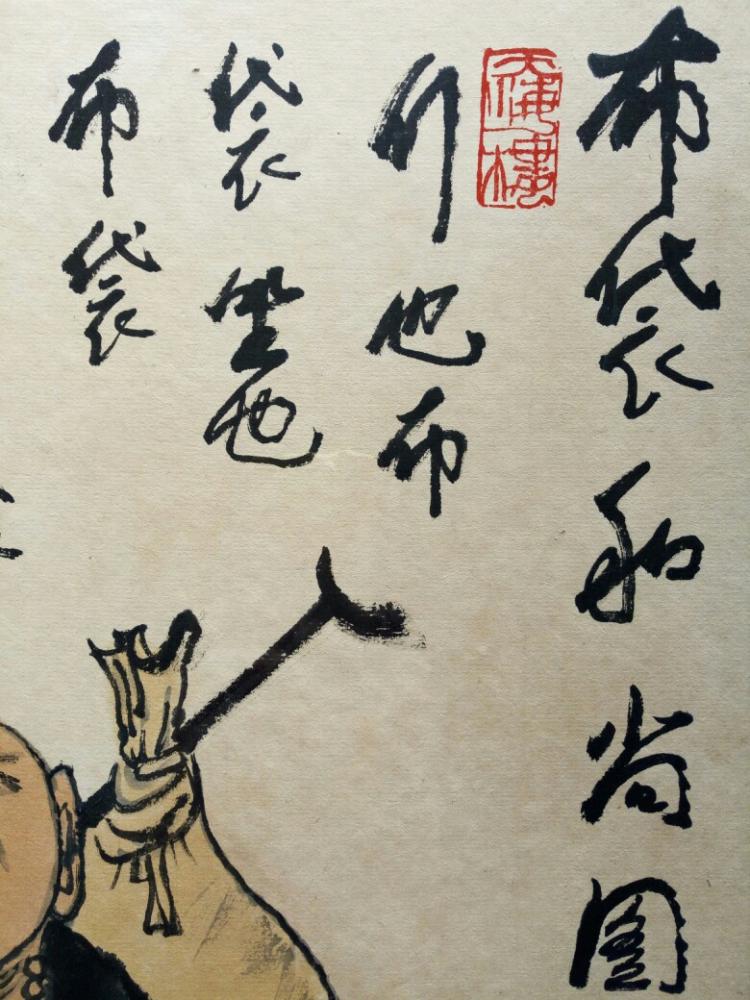 布袋和尚圖
行也布
袋坐也
布袋